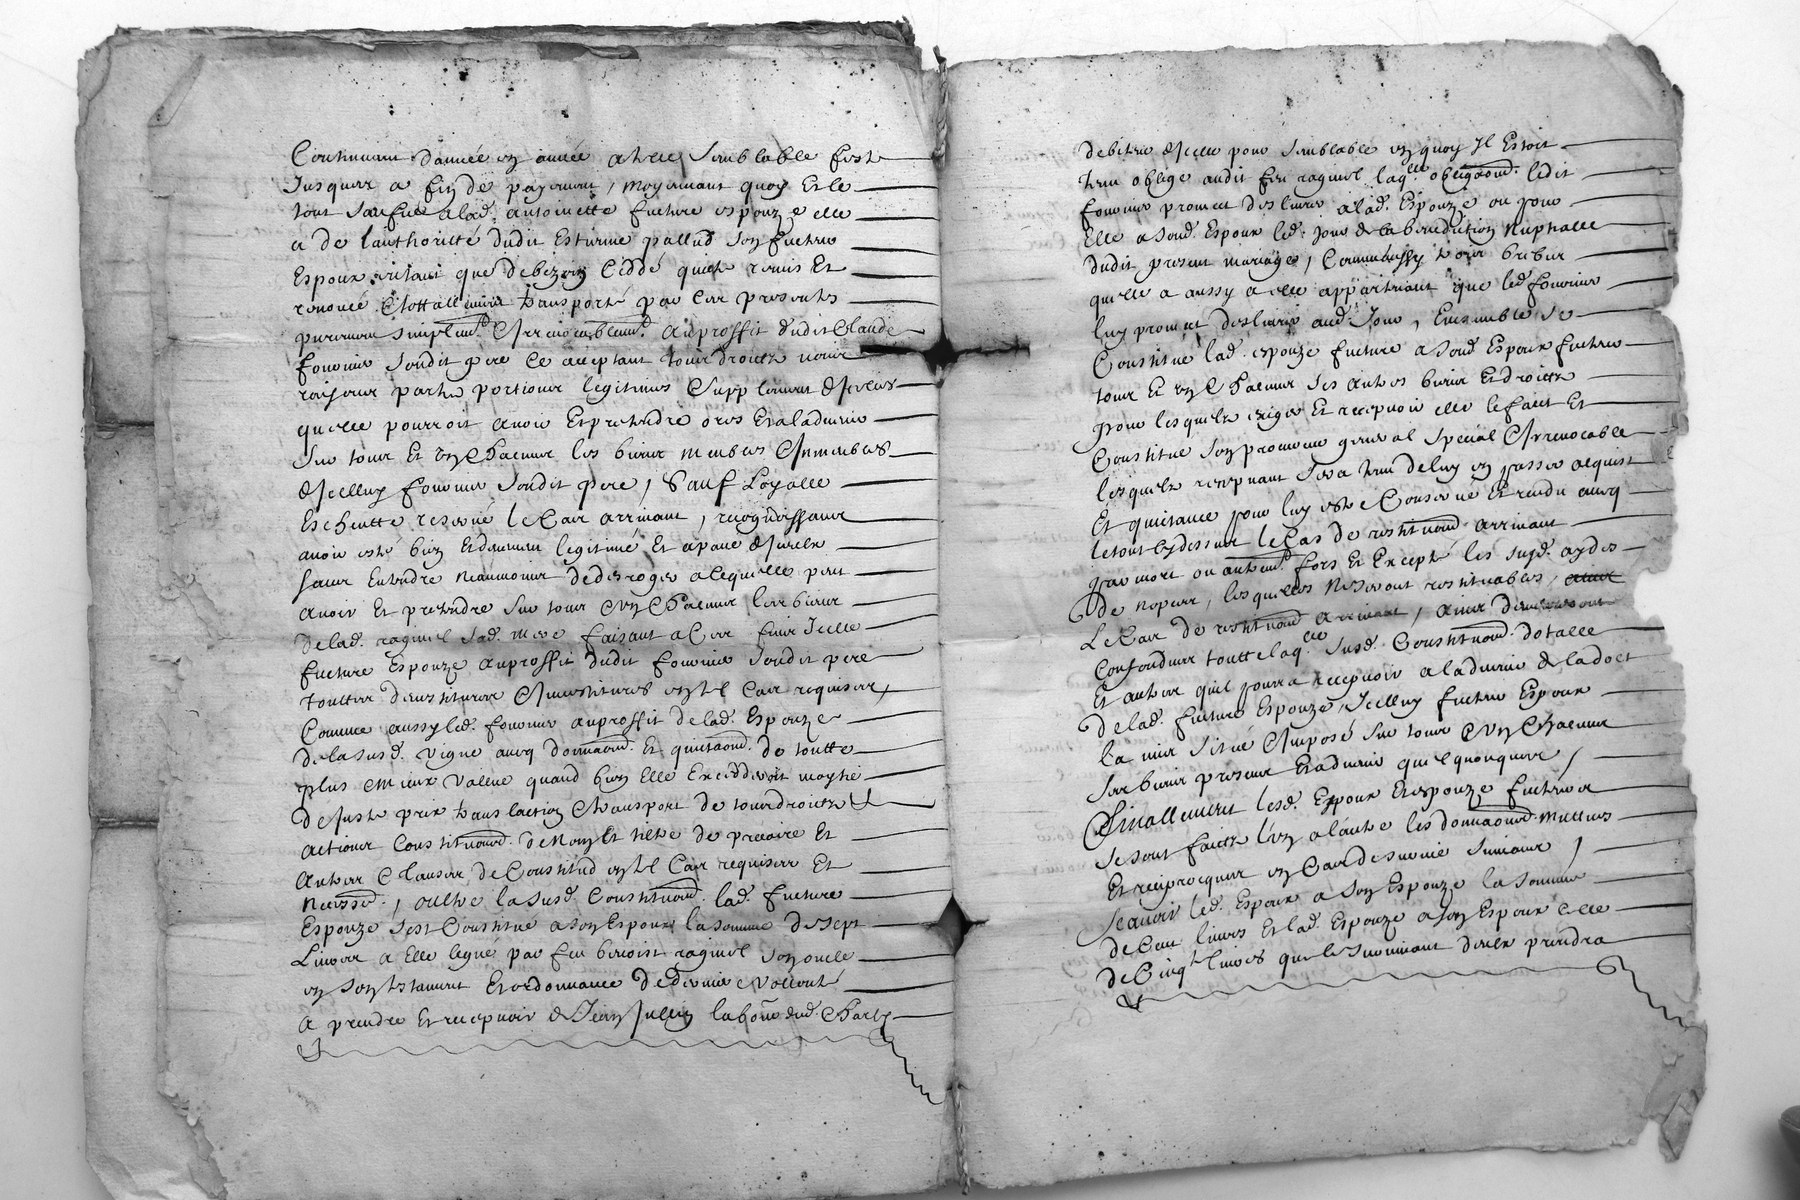 Continuant dannée en année a telle semblable feste
Jusques a fin de payement, moyennant quoy et le
tout sauflué a lad. antoinette future espouze elle
a de lauthoritté dudit Estienne pallud son futur
Espoux que de bezoin Ceddé quitté remis Et
renoncé transporté par Ces presentes
purement simplemt. Et Irrevocablemt. au proffit dudit Claude
fournier sondit pere Ce acceptant tous droicts noms
raisons parts portions legitimes Supplement dIcelles
quelle pourroit avoir Et pretendre ores Et a ladvenir
Sur tous Et Un Chacuns les biens meubles Et Immeubles
dIcelluy fournier sondit pere, Sauf Loyalle
Escheutte reservé le Cas arrivant, recognoissant
avoir esté bien Et deuement legitimé Et apané dIceux
sans Entendre neanmoins de desroger a Ce quelle peut
avoir Et pretendre Sur tous Et Un Chacuns les biens
de lad. raginel sad. mere faisant a Ces fins Icelle
future Espouze au proffit dudit fournier sondit pere
touttes devestitures Et Investitures en tel Cas requises,
Comme aussy led. fournier au proffit de lad. Espouze
de la susd. vigne avecq donnaond. Et quittaond. de toutte
plus Et mieux vallue quand bien Elle Excedderoit moytié
de Juste prix translaction Et transport de tous droicts Et
actions Constituond. de Nom Et tiltre de precaire Et
autres Clauses de Constitud en tel Cas requises Et
necessrs., oultre la susd. Constituond. lad. future
Espouze sest Constitué a son Espoux la somme de sept
Livres a Elle legué par feu benoist raginel son oncle
en son testament Et ordonnance de derniere volonté
A prendre Et recepvoir de Jean Jullien labour. dud. Charly
debiteur dIcelle pour semblable en quoy Il Estoit
tenu obligé audit feu raginel laqlle obligaond. ledit
fournier promect deslivrer a lad. Espouze ou pour
Elle a sond. Espoux led. Jour de la benediction Nuptialle
dudit present mariage, Comme aussy trois brebis
quelle a aussy a elle appartenant que led. fournier
luy promect deslivrer aud. Jour, Ensemble se
Constitue lad. espouze future a sond. Espoux futur
tous Et Un Chacuns ses autres biens Et droicts
pour lesquels exiger Et recepvoir elle le faict Et
Constitue son procureur general special Et Irrevocable
lesquels recepvant sera tenu de luy en passer acquist
Et quittance pour luy estre Conservé Et rendu avecq
le tout Cy dessus le Cas de restituond. arrivant
par mort ou autremt. fors Et Excepté les susd. aydes
de nopces, lesquelles ne seront restituables,
Le Cas de restituond. arrivant, ains demeureront
Confondues toutte laqlle susd. Constituond. dotalle
Et autres quil pourra recepvoir a ladvenir de la dot
de lad. future Espouze, Icelluy futur Espoux
la mis situé Et Imposé Sur tous Et Un Chacuns
ses biens presens Et advenir quelquonques,
Et finallement lesd. Espoux Et espouze futurs
se sont faicts lun a lautre les donnaond. mutuelles
Et reciprocques en Cas de survie suivans,
scavoir led. Espoux a son Espouze la somme
de Cent livres Et lad. Espouze a son Espoux Celle
de Cinqte. livres que le survivant deulx prendra